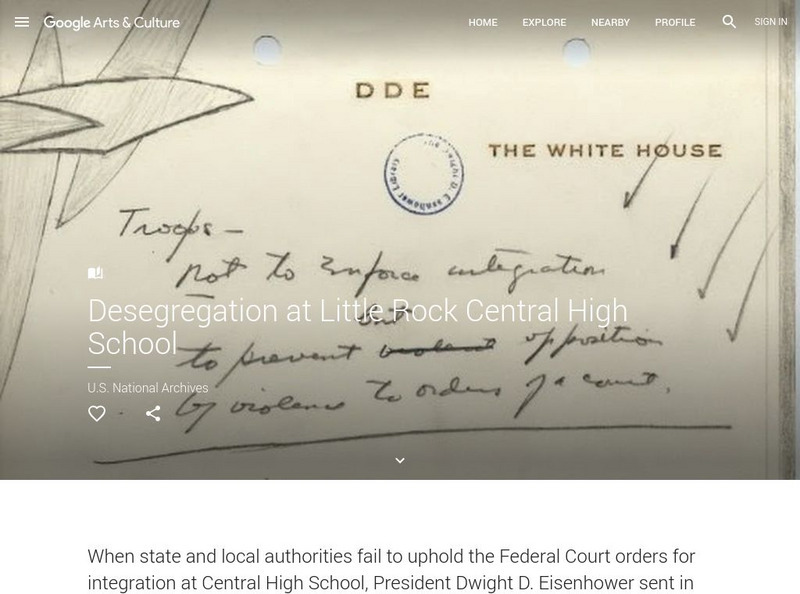 Google Arts & Culture HOME EXPLORE NEARBY PROFILE SIGN IN
DDE
THE WHITE HOUSE
Troops –
Not to Enforce integration
but
to prevent violent opposition
by violence to orders of a court.
Desegregation at Little Rock Central High
School
U.S. National Archives
When state and local authorities fail to uphold the Federal Court orders for
integration at Central High School, President Dwight D. Eisenhower sent in